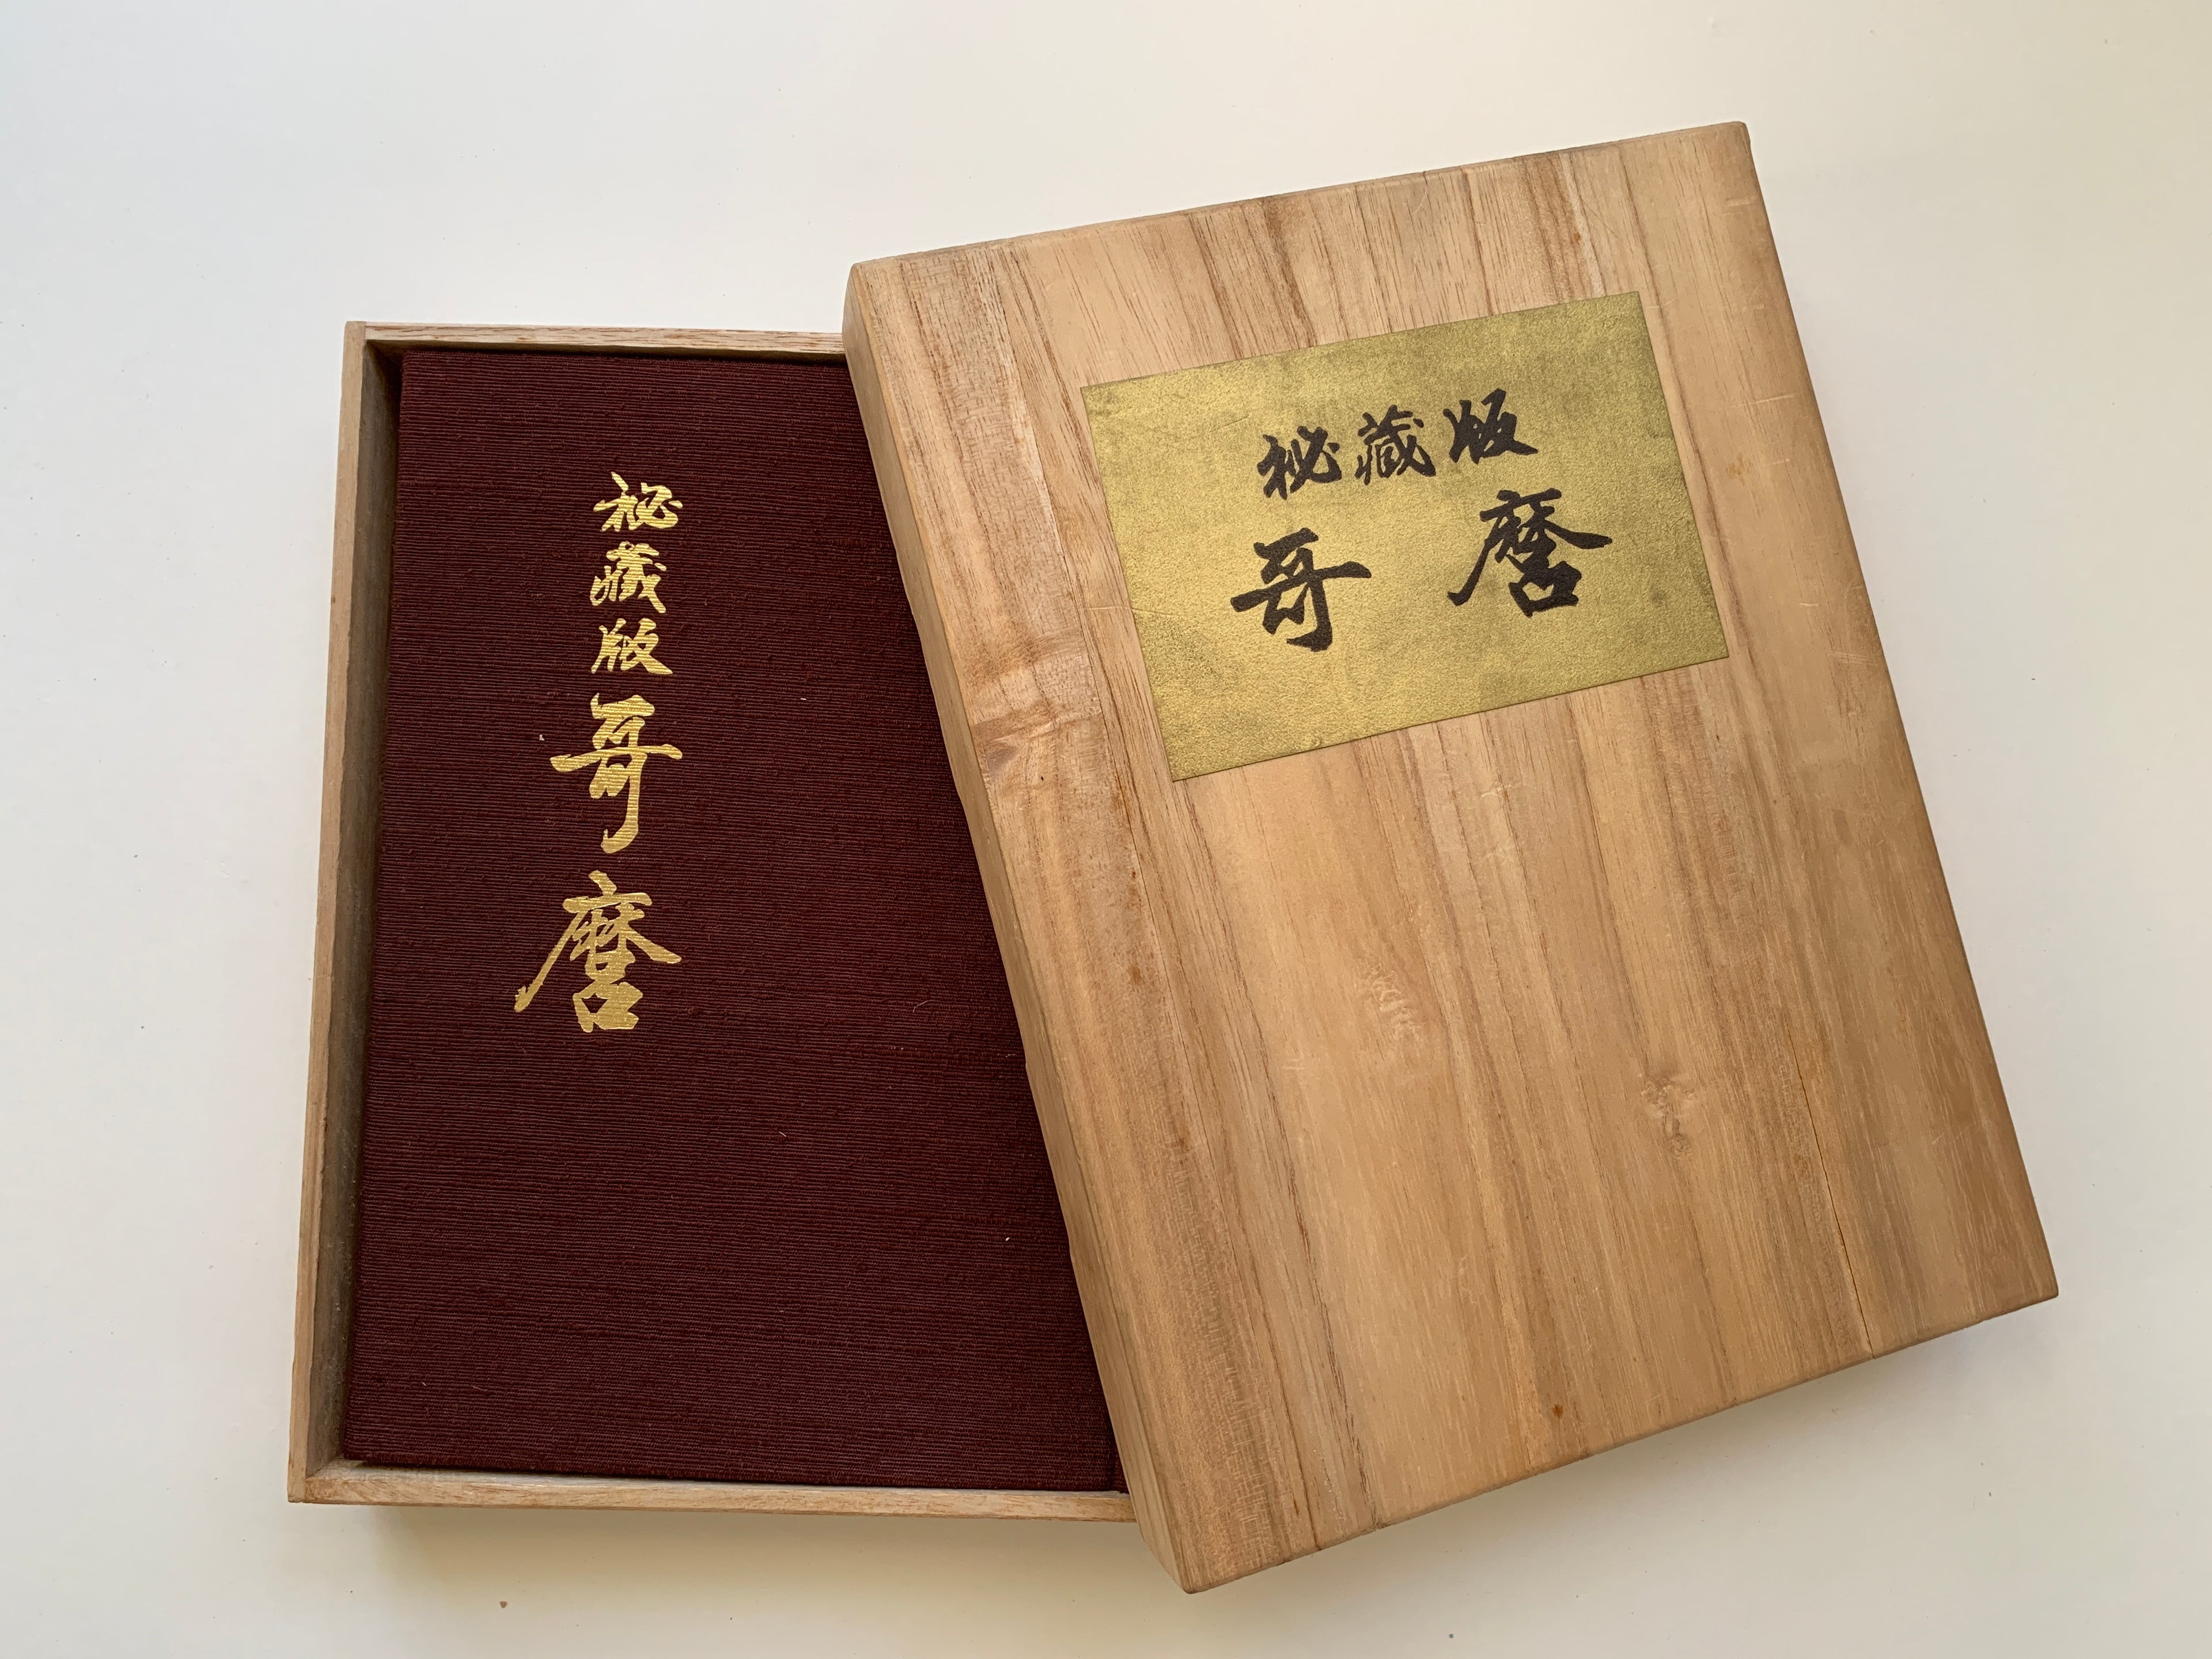 秘蔵版哥麿
秘蔵版
哥麿